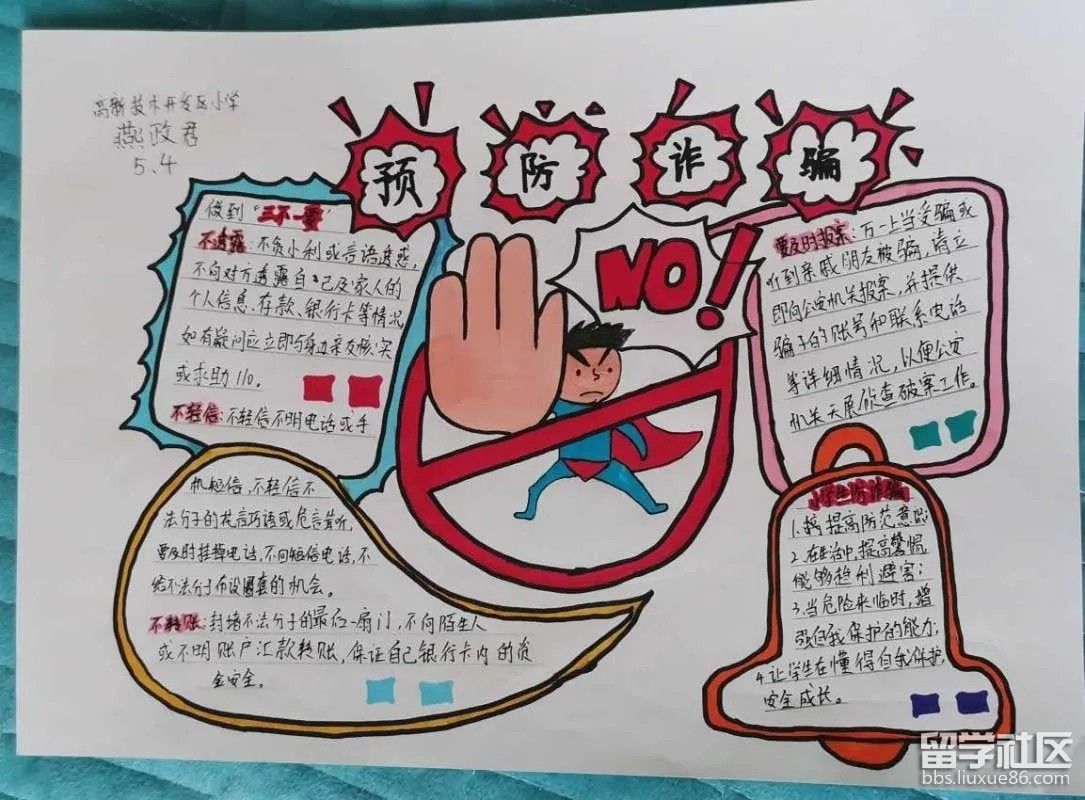 高新技术开发区小学
燕政君
5.4
预防诈骗
NO!
做到“三不一要”
不透露:不贪小利或言语诱惑,
不向对方透露自己及家人的
个人信息、存款、银行卡等情况
如有疑问应立即与身边亲友核实
或求助110。
不轻信:不轻信不明电话或手
机短信,不轻信不
法分子的花言巧语或危言耸听,
要及时挂掉电话,不回短信电话,不
给不法分子布设圈套的机会。
不转账:封堵不法分子的最后一扇门,不向陌生人
或不明账户汇款转账,保证自己银行卡内的资
金安全。
要及时报案:万一上当受骗或
听到亲戚朋友被骗,请立
即向公安机关报案,并提供
骗子的账号和联系电话
等详细情况,以便公安
机关开展侦查破案工作。
小学生防诈骗
1.提高防范意识
2.在生活中,提高警惕
能够趋利避害;
3.当危险来临时,增
强自我保护的能力,
4.让学生在懂得自我保护,
安全成长。
留学社区
bbs.liuxue86.com